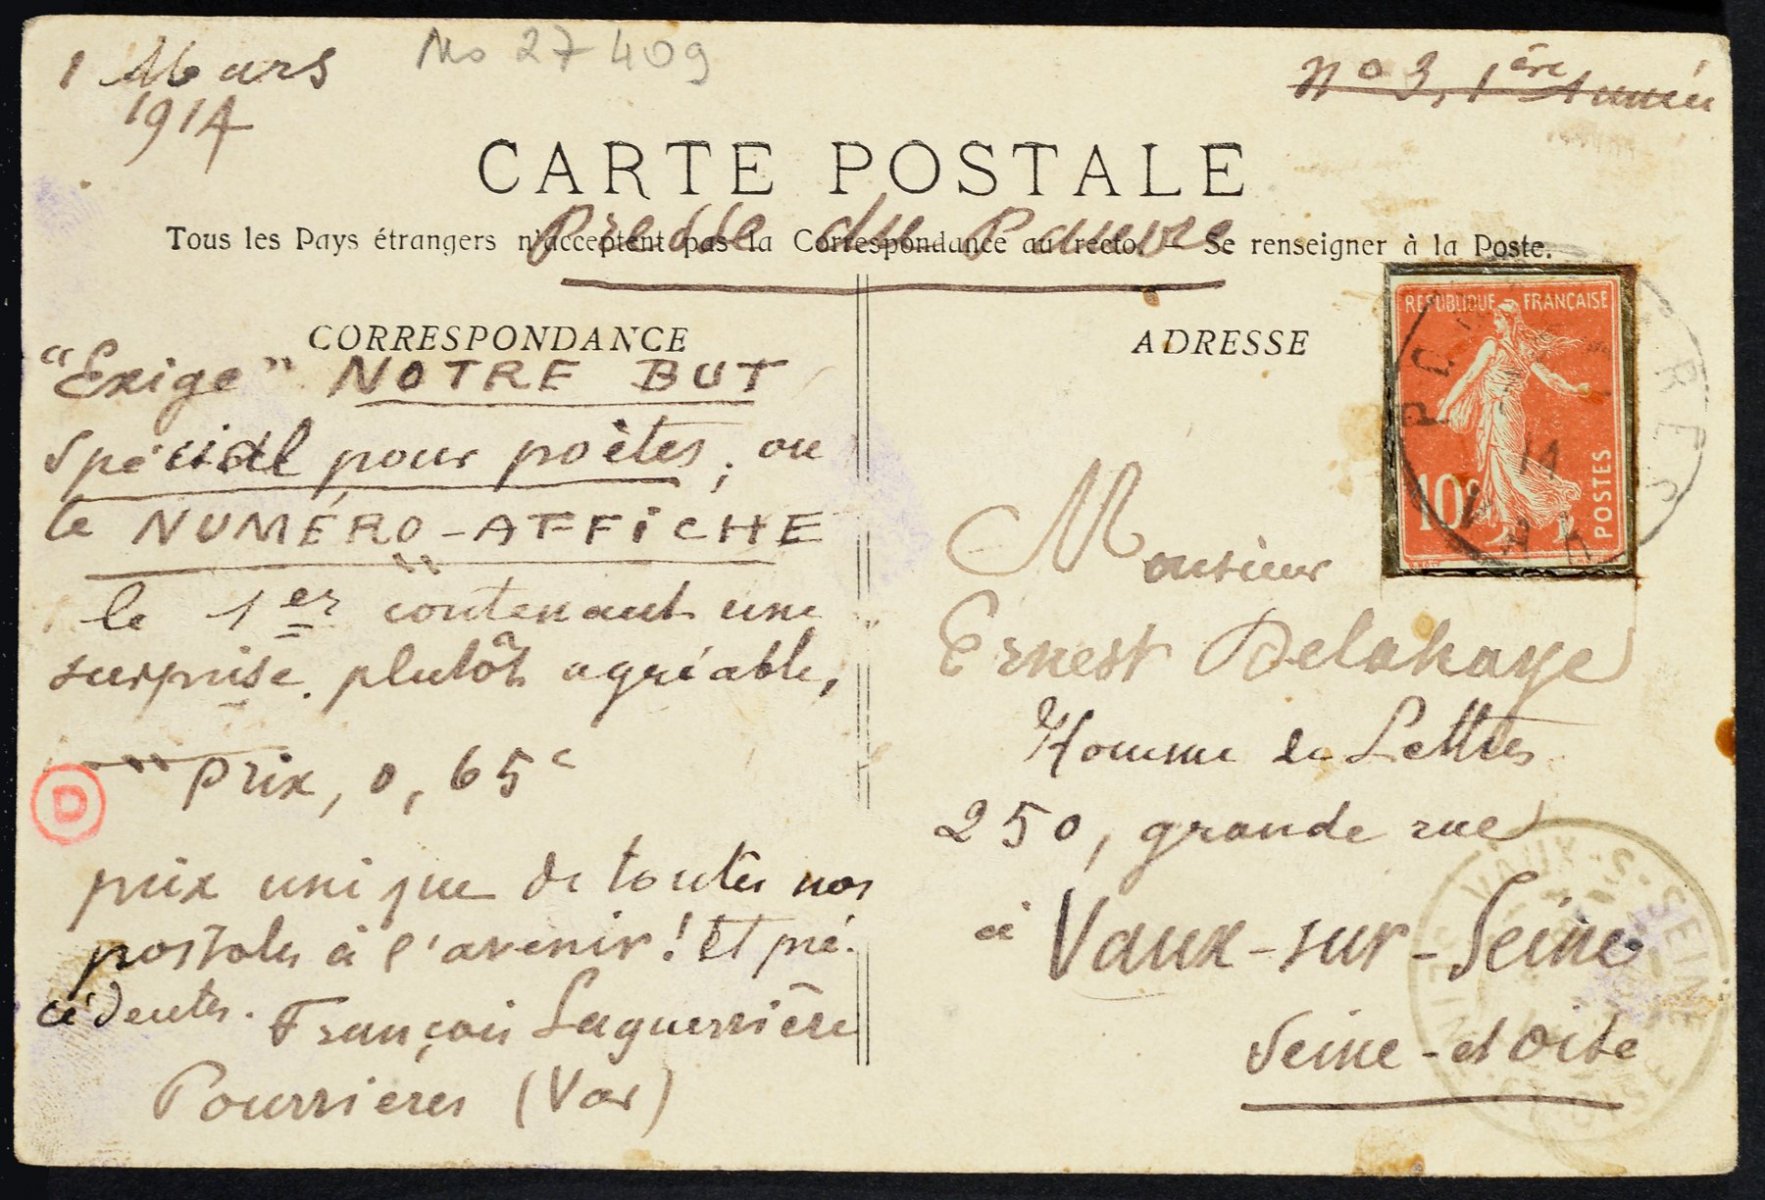 1 Mars
1914
No 27409
N° 3, 1ère Année
CARTE POSTALE
Presse du Pauvre
Tous les Pays étrangers n'acceptent pas la Correspondance au recto. — Se renseigner à la Poste.
CORRESPONDANCE
"Exige" NOTRE BUT
Spécial pour poètes, ou
le NUMÉRO-AFFICHE
le 1er contenant une
surprise plutôt agréable,
prix, 0,65c
D
prix unique de toutes nos
postales à l'avenir! Et pré-
cédentes. François Laguerrière
Pourrières (Var)
ADRESSE
REPUBLIQUE FRANÇAISE
10c
POSTES
Monsieur
Ernest Delahaye
Homme de Lettres
250, grande rue
à Vaux-sur-Seine
Seine-et Oise
VAUX-S-SEINE